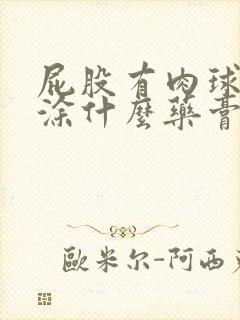 屁股有肉球
涂什麼藥膏
歐米尔-阿西